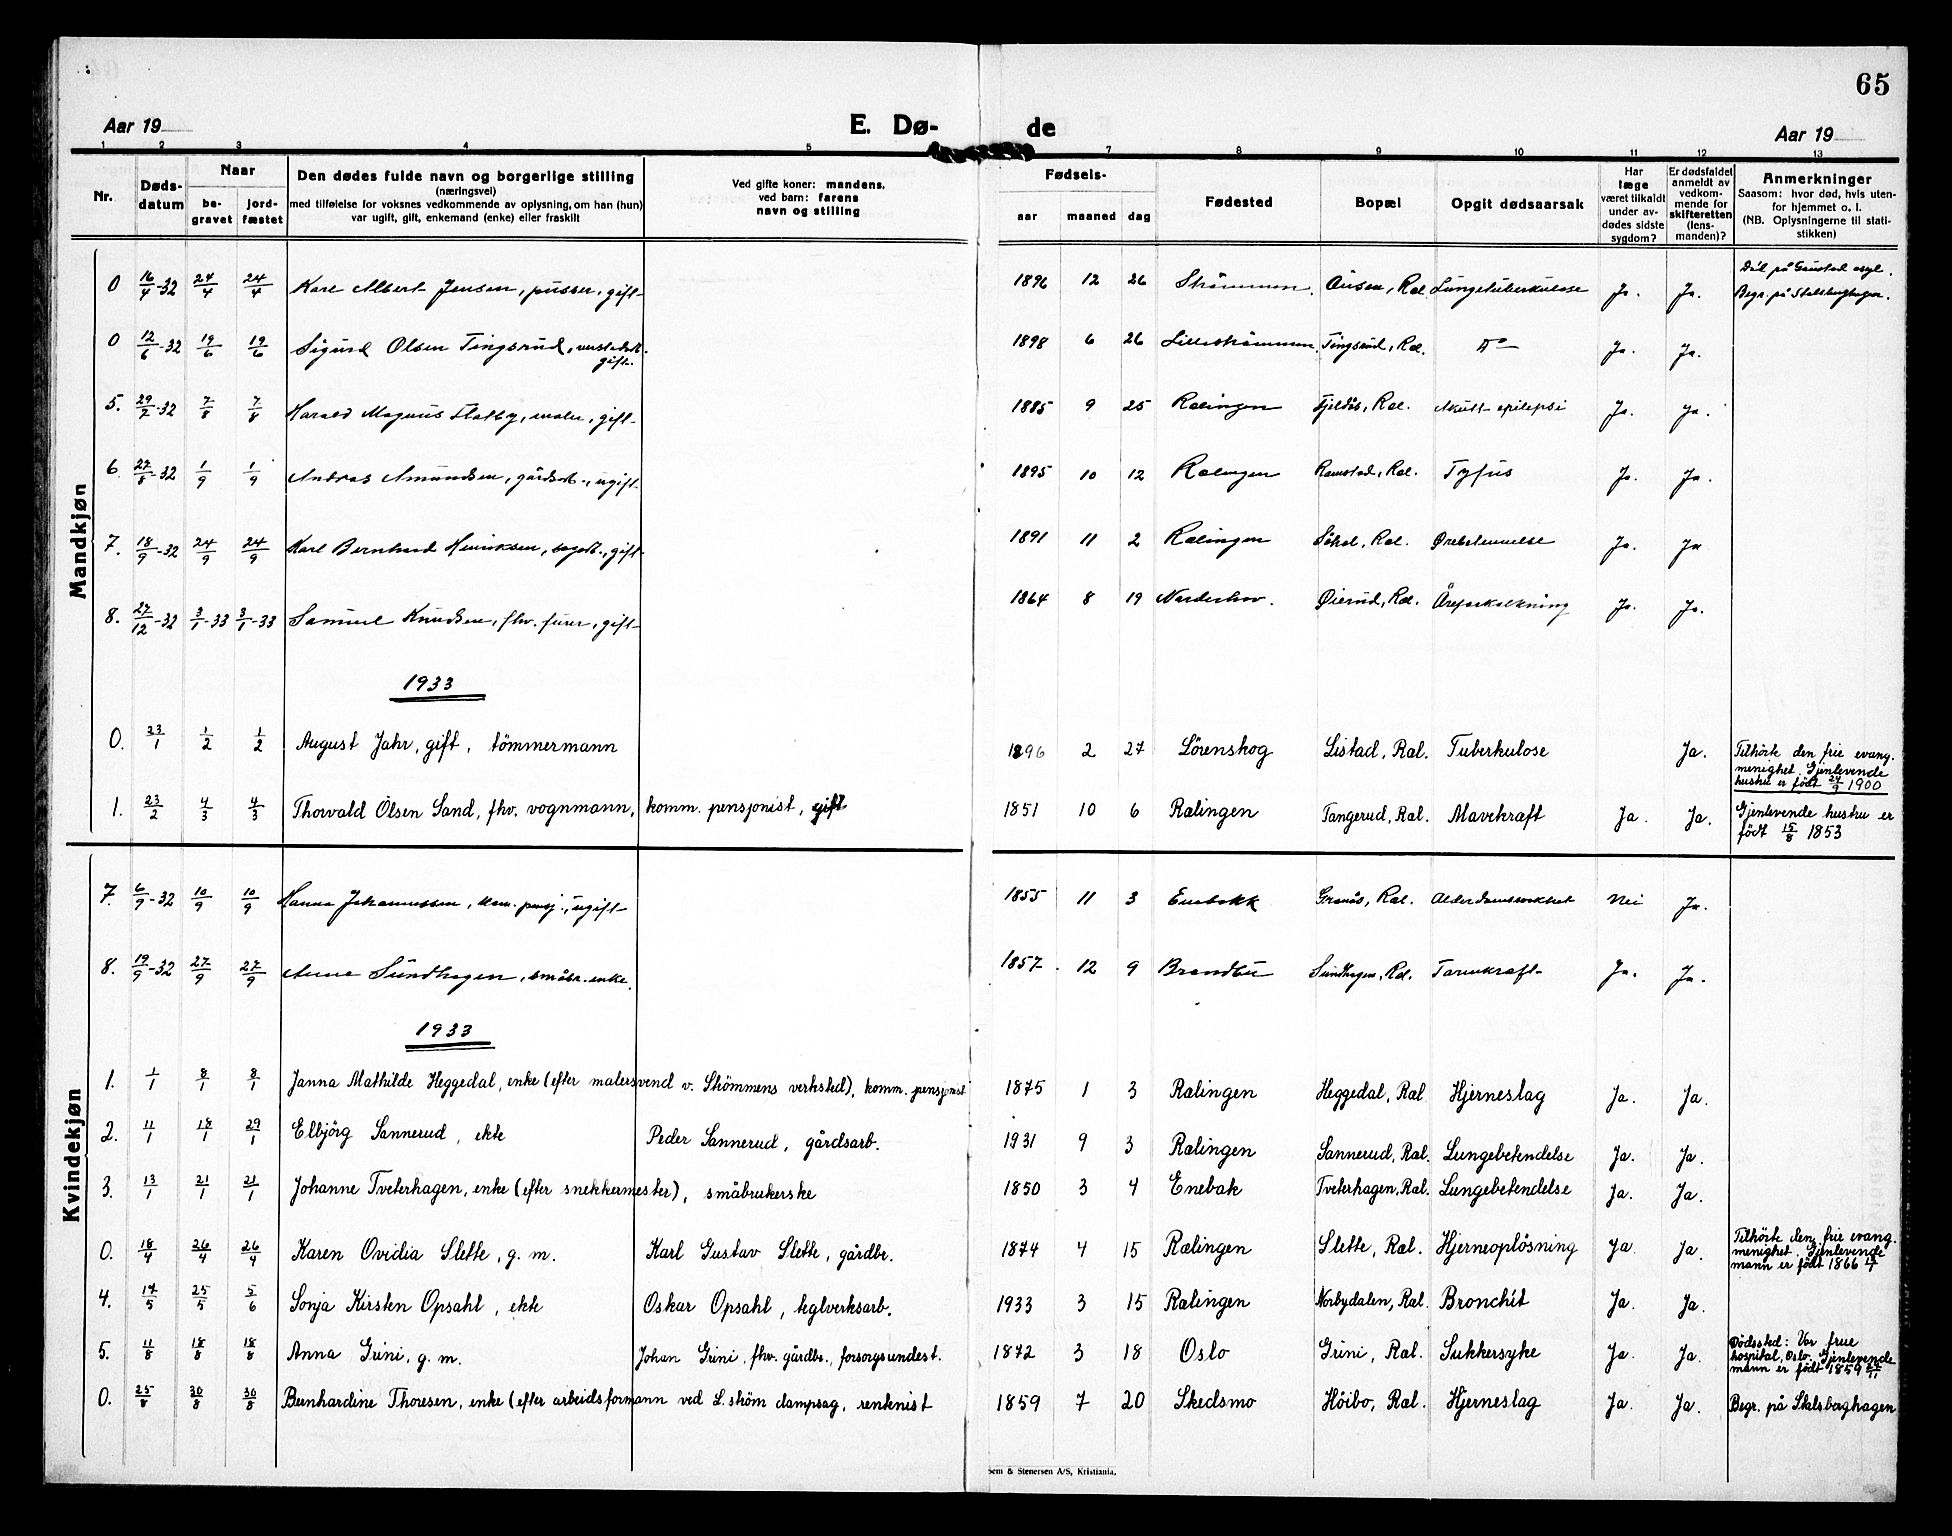 65
Aar 19
E. Dø- de
Aar 19
1 2 3 4 5 7 8 9 10 11 12 13
Nr. Døds-datum Naar be-gravet jord-fæstet Den dødes fulde navn og borgerlige stilling (næringsvei) med tilføielse for voksnes vedkommende av oplysning, om han (hun) var ugift, gift, enkemand (enke) eller fraskilt Ved gifte koner: mandens, ved barn: farens navn og stilling Fødsels- aar maaned dag Fødested Bopæl Opgit dødsaarsak Har læge været tilkaldt under av-dødes sidste sygdom? Er dødsfaldet anmeldt av vedkom-mende for skifteretten (lens-manden)? Anmerkninger Saasom: hvor død, hvis uten-for hjemmet o. l. (NB. Oplysningerne til stati-stikken)
Mandkjøn
0 16/4-32 24/4 24/4 Karl Albert Jensen, pusser, gift 1896 12 26 Strømmen Ral. Lungetuberkulose Ja. Ja. Død på Gaustad asyl. Begr. på Stalsberghagen.
0 12/6-32 19/6 19/6 Sigurd Olsen Tingsrud, verkstedarb. gift. 1898 6 26 Lillestrømmen Tingsrud, Ral. Do Ja. Ja.
5. 29/7-32 7/8 7/8 Harald Magnus Flatby, maler, gift 1885 9 25 Rælingen Fjeldås, Ral. Akutt epilepsi Ja. Ja.
6 27/8-32 1/9 1/9 Andreas Amundsen, gårdsarb., ugift 1895 10 12 Rælingen Ramstad, Ral. Tyfus Ja. Ja.
7. 18/9-32 24/9 24/9 Karl Bernhard Henriksen, gift 1891 11 2 Rælingen Ral. Ørebetennelse Ja. Ja
8. 27/12-32 3/1-33 3/1-33 Samuel Knudsen, fhv. furer, gift 1864 8 19 Norderhov. Øierud, Ral. Åreforkalkning Ja. Ja.
1933
0. 23/1 1/2 1/2 August Jahr, gift, tömmermann 1896 2 27 Lörenskog Listad, Ral. Tuberkulose Ja. Tilhörte den frie evang. menighet. Gjenlevende hustru er födt 24/9 1900
1. 23/2 4/3 4/3 Thorvald Olsen Sand, fhv. vognmann, komm. pensjonist, gift 1851 10 6 Rælingen Tangerud, Ral. Mavekraft Ja. Ja. Gjenlevende hustru er födt 15/8 1853
Kvindekjøn
7. 6/9-32 10/9 10/9 Hanna Johannessen, kom. pensj., ugift 1855 11 3 Enebakk Granås, Ral. Alderdomssvakhet Nei Ja.
8. 19/9-32 27/9 27/9 Anne Sundhagen, småbr. enke. 1857. 12 9 Brandbu Sundhagen, Ral. Tarmkraft Ja. Ja.
1933
1. 1/1 8/1 8/1 Janna Mathilde Heggedal, enke (efter malersvend v. Strömmens verksted), komm. pensjonist 1875 1 3 Rælingen Heggedal, Ral Hjerneslag Ja. Ja.
2. 11/1 18/1 29/1 Elbjörg Sannerud, ekte Peder Sannerud, gårdsarb. 1931 9 3 Rælingen Sannerud, Ral. Lungebetendelse Ja. Ja.
3. 13/1 21/1 21/1 Johanne Tveterhagen, enke (efter snekkermester), småbrukerske 1850 3 4 Enebak Tveterhagen, Ral. Lungebetendelse Ja. Ja.
0. 18/4 26/4 26/4 Karen Ovidia Slette, g. m. Karl Gustav Slette, gårdbr. 1874 4 15 Rælingen Slette, Ral. Hjerneoplösning Ja. Ja. Tilhörte den frie evang. menighet. Gjenlevende mann er födt 1866
4. 17/5 25/5 5/6 Sonja Kirsten Opsahl, ekte Oskar Opsahl, teglverksarb. 1933 3 15 Rælingen Norbydalen, Ral. Bronchit Ja. Ja.
5. 11/8 18/8 18/8 Anna Grini, g. m. Johan Grini, fhv. gårdbr., forsorgsundest. 1872 3 18 Oslo Grini, Ral. Sukkersyke Ja. Ja. Dödssted: Vor frue hospital, Oslo. Gjenlevende mann er födt 1859 22/11
0. 25/8 30/8 30/8 Bernhardine Thoresen, enke (efter arbeidsformann ved L.ström dampsag, rentenist 1859 7 20 Skedsmo Höibo, Ral. Hjerneslag Ja. Ja. Begr. på Stalsberghagen
Sem & Stenersen A/S, Kristiania.